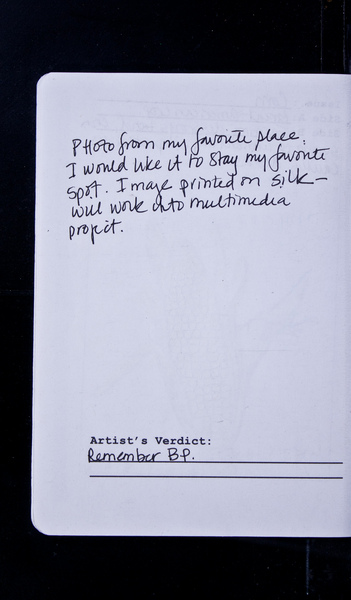 Photo from my favorite place.
I would like it to stay my favorite
spot. Image printed on silk –
will work into multimedia
project.
Artist's Verdict:
Remember BP.